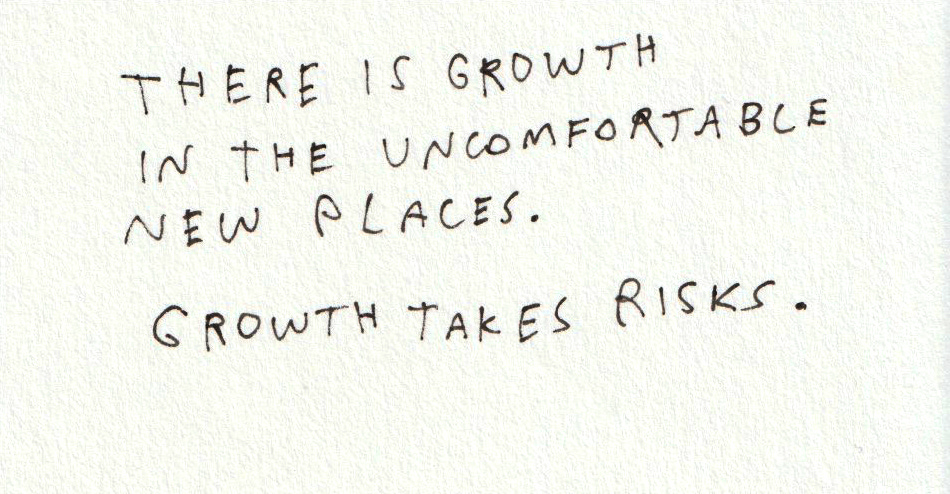 THERE IS GROWTH
IN THE UNCOMFORTABLE
NEW PLACES.
GROWTH TAKES RISKS.